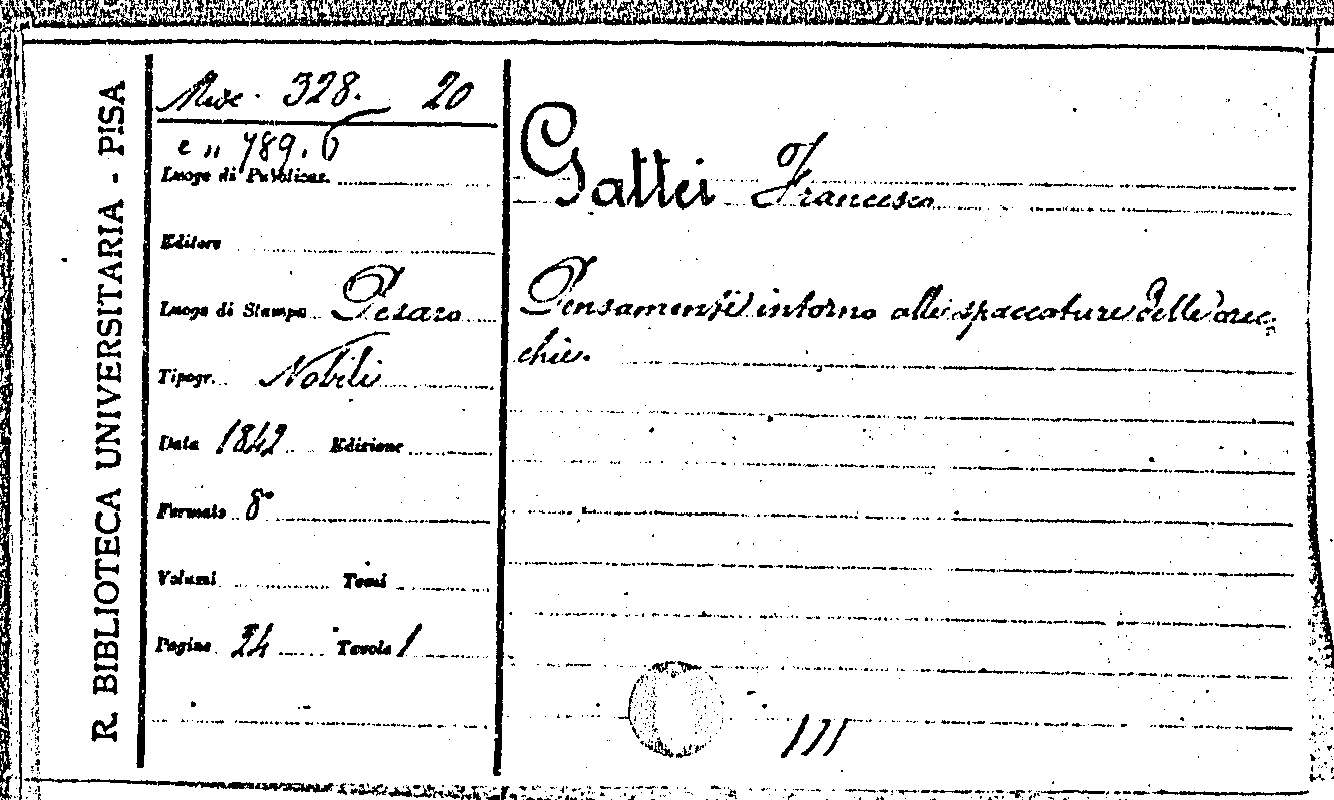 R. BIBLIOTECA UNIVERSITARIA - PISA
Misc. 328. 20
e „ 789. 6
Luogo di Pubblicaz.
Editore
Luogo di Stampa Pesaro
Tipogr. Nobili
Data 1842 Edizione
Formato 8°
Volumi Tomi
Pagine 24 Tavole 1
Gattei Francesco
Pensamenti intorno alle spaccature delle orec-
chie.